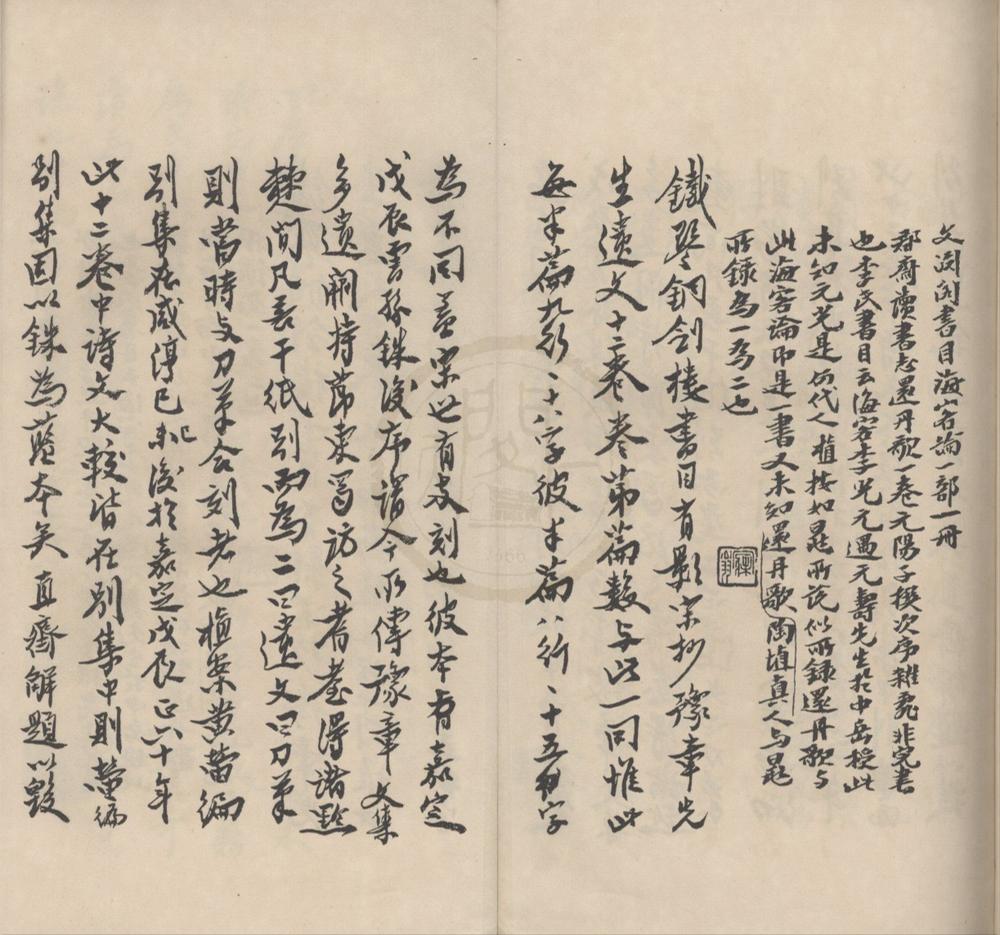 文淵閣書目海客論一部一冊
郡齋讀書志還丹歌一卷元陽子撰次序雜亂非完書
也李氏書目云海客李光元遇元壽先生於中岳授此
未知元光是何代人植按如晁所說似所錄還丹歌与
此海客論即是一書又未知還丹歌陶埴真人与晁
所錄為一為二也
鐵琴銅劍樓書目有影宋抄豫章先
生遺文十二卷卷第篇數与此一同惟此
每半篇九行、十八字彼半篇八行、十五字
為不同蓋宋世有兩刻也彼本有嘉定
戊辰雲孫銖後序謂今所傳豫章文集
多遺闕持節東蜀訪之耆耋得諸黔
棘間凡若干紙別而為二曰遺文曰刀筆
則當時与刀筆合刻者也植案黄䇓編
別集在咸淳已未後於嘉定戊辰正六十年
此十二卷中詩文大較皆在別集中則䇓編
別集固以銖為藍本矣直齋解題以毀